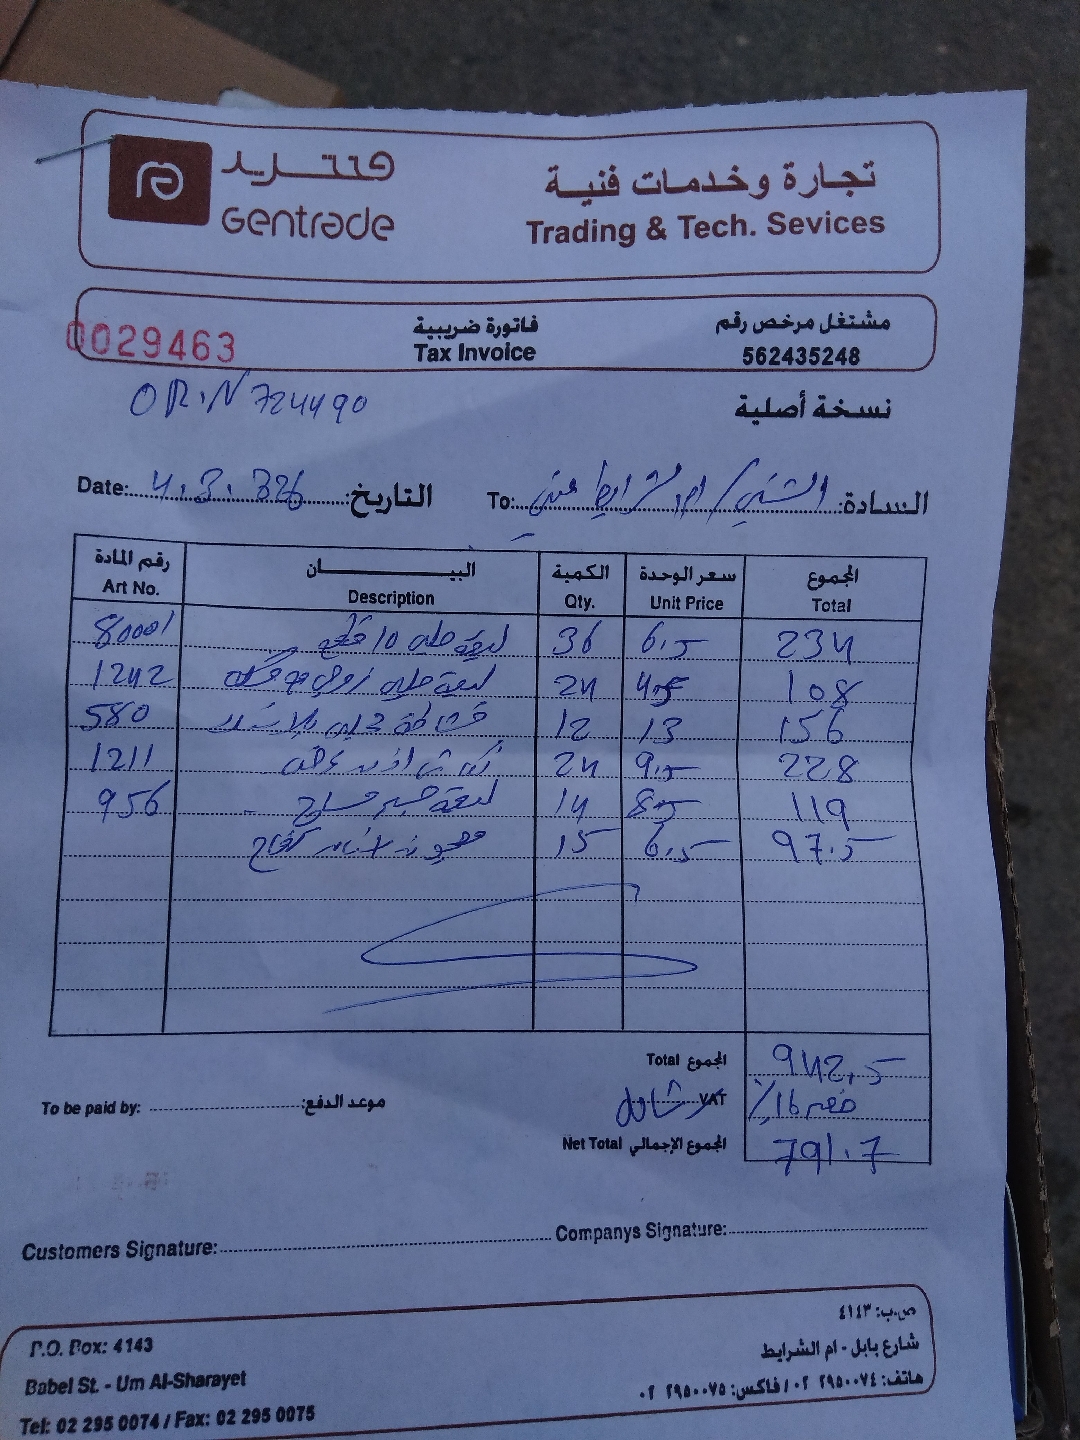 جنتريد
Gentrade
تجارة وخدمات فنية
Trading & Tech. Sevices
0029463
فاتورة ضريبية
Tax Invoice
مشتغل مرخص رقم
562435248
OR.N 724490
نسخة أصلية
Date: التاريخ:
To: السادة:
رقم المادة البيـــــــان الكمية سعر الوحدة المجموع
Art No. Description Qty. Unit Price Total
80001 ليفة جلي 36 6.5 234
1242 ليفة جلي 24 4.5 108
580 12 13 156
1211 24 9.5 228
956 ليفة 14 8.5 119
15 6.5 97.5
Total المجموع 942.5
VAT شامل خصم 16%
To be paid by: موعد الدفع:
Net Total المجموع الإجمالي 791.7
Customers Signature: Companys Signature:
P.O. Box: 4143
Babel St. - Um Al-Sharayet
Tel: 02 295 0074 / Fax: 02 295 0075
ص.ب: ٤١٤٣
شارع بابل - ام الشرايط
هاتف: ٢٩٥٠٠٧٤ ٠٢ / فاكس: ٢٩٥٠٠٧٥ ٠٢